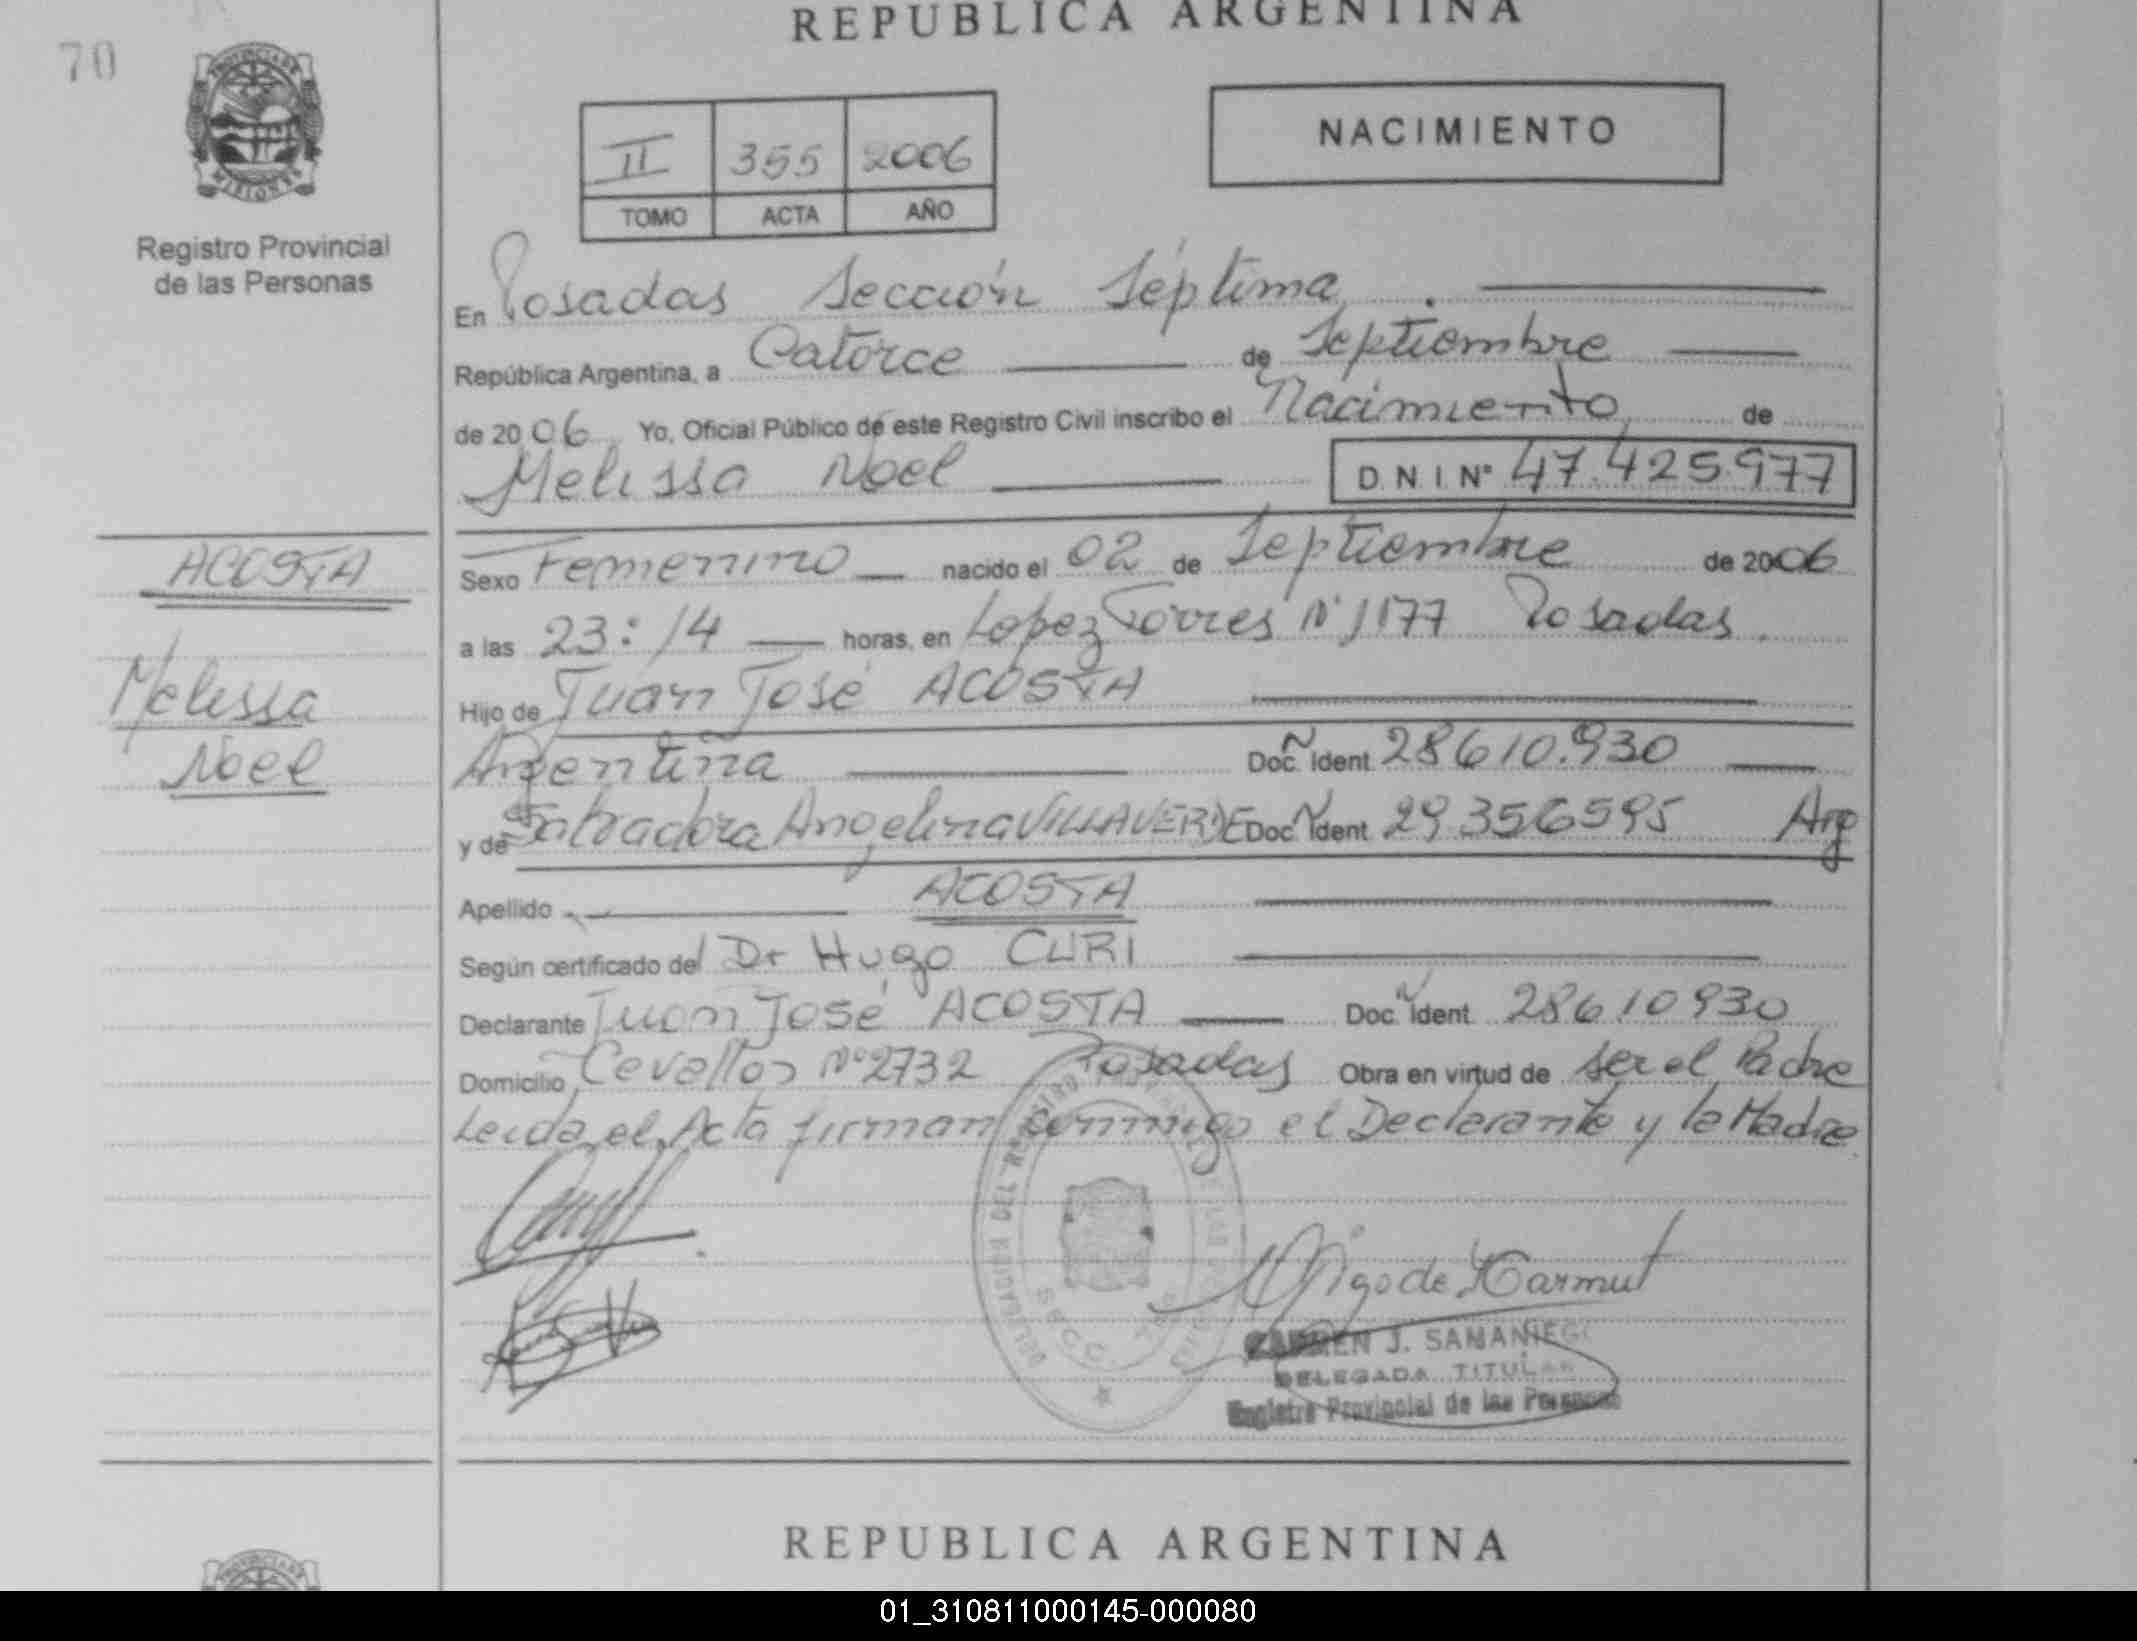 REPUBLICA ARGENTINA
70
PROVINCIA DE
MISIONES
Registro Provincial
de las Personas
II 355 2006
TOMO ACTA AÑO
NACIMIENTO
En Posadas Sección Séptima
República Argentina, a Catorce de Septiembre
de 2006 Yo, Oficial Público de este Registro Civil inscribo el Nacimiento de
Melissa Noel D.N.I. Nº 47.425.977
ACOSTA
Melissa
Noel
Sexo Femenino nacido el 02 de Septiembre de 2006
a las 23:14 horas, en Lopez Torres Nº 1177 Posadas.
Hijo de Juan José ACOSTA
Argentina Doc. Ident. 28610.930
y de Salvadora Angelina VILLAVERDE Doc. Ident 29356595 Arg
Apellido ACOSTA
Según certificado del Dr Hugo CURI
Declarante Juan José ACOSTA Doc. Ident 28610930
Domicilio Cevallos Nº 2732 Posadas Obra en virtud de ser el Padre
Leida el Acta firman conmigo el Declarante y la Madre
CARMEN J. SAMANIEGO
DELEGADA TITULAR
Registro Provincial de las Personas
REPUBLICA ARGENTINA
01_310811000145-000080